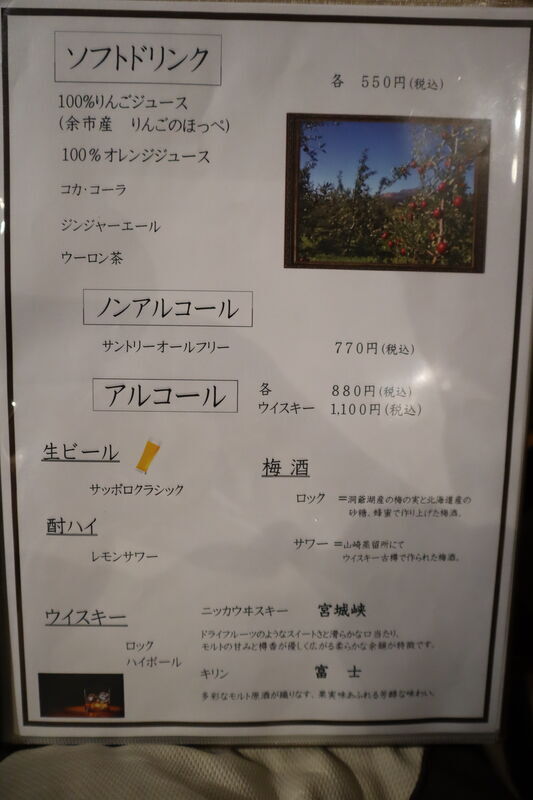 ソフトドリンク
各 550円(税込)
100%りんごジュース
(余市産 りんごのほっぺ)
100%オレンジジュース
コカ・コーラ
ジンジャーエール
ウーロン茶
ノンアルコール
サントリーオールフリー 770円(税込)
アルコール
各 880円(税込)
ウイスキー 1,100円(税込)
生ビール
サッポロクラシック
酎ハイ
レモンサワー
梅酒
ロック =洞爺湖産の梅の実と北海道産の
砂糖、蜂蜜で作り上げた梅酒。
サワー =山崎蒸留所にて
ウイスキー古樽で作られた梅酒。
ウイスキー
ロック
ハイボール
ニッカウヰスキー 宮城峡
ドライフルーツのようなスイートさと滑らかな口当たり、
モルトの甘みと樽香が優しく広がる柔らかな余韻が特徴です。
キリン 富士
多彩なモルト原酒が織りなす、果実味あふれる芳醇な味わい。